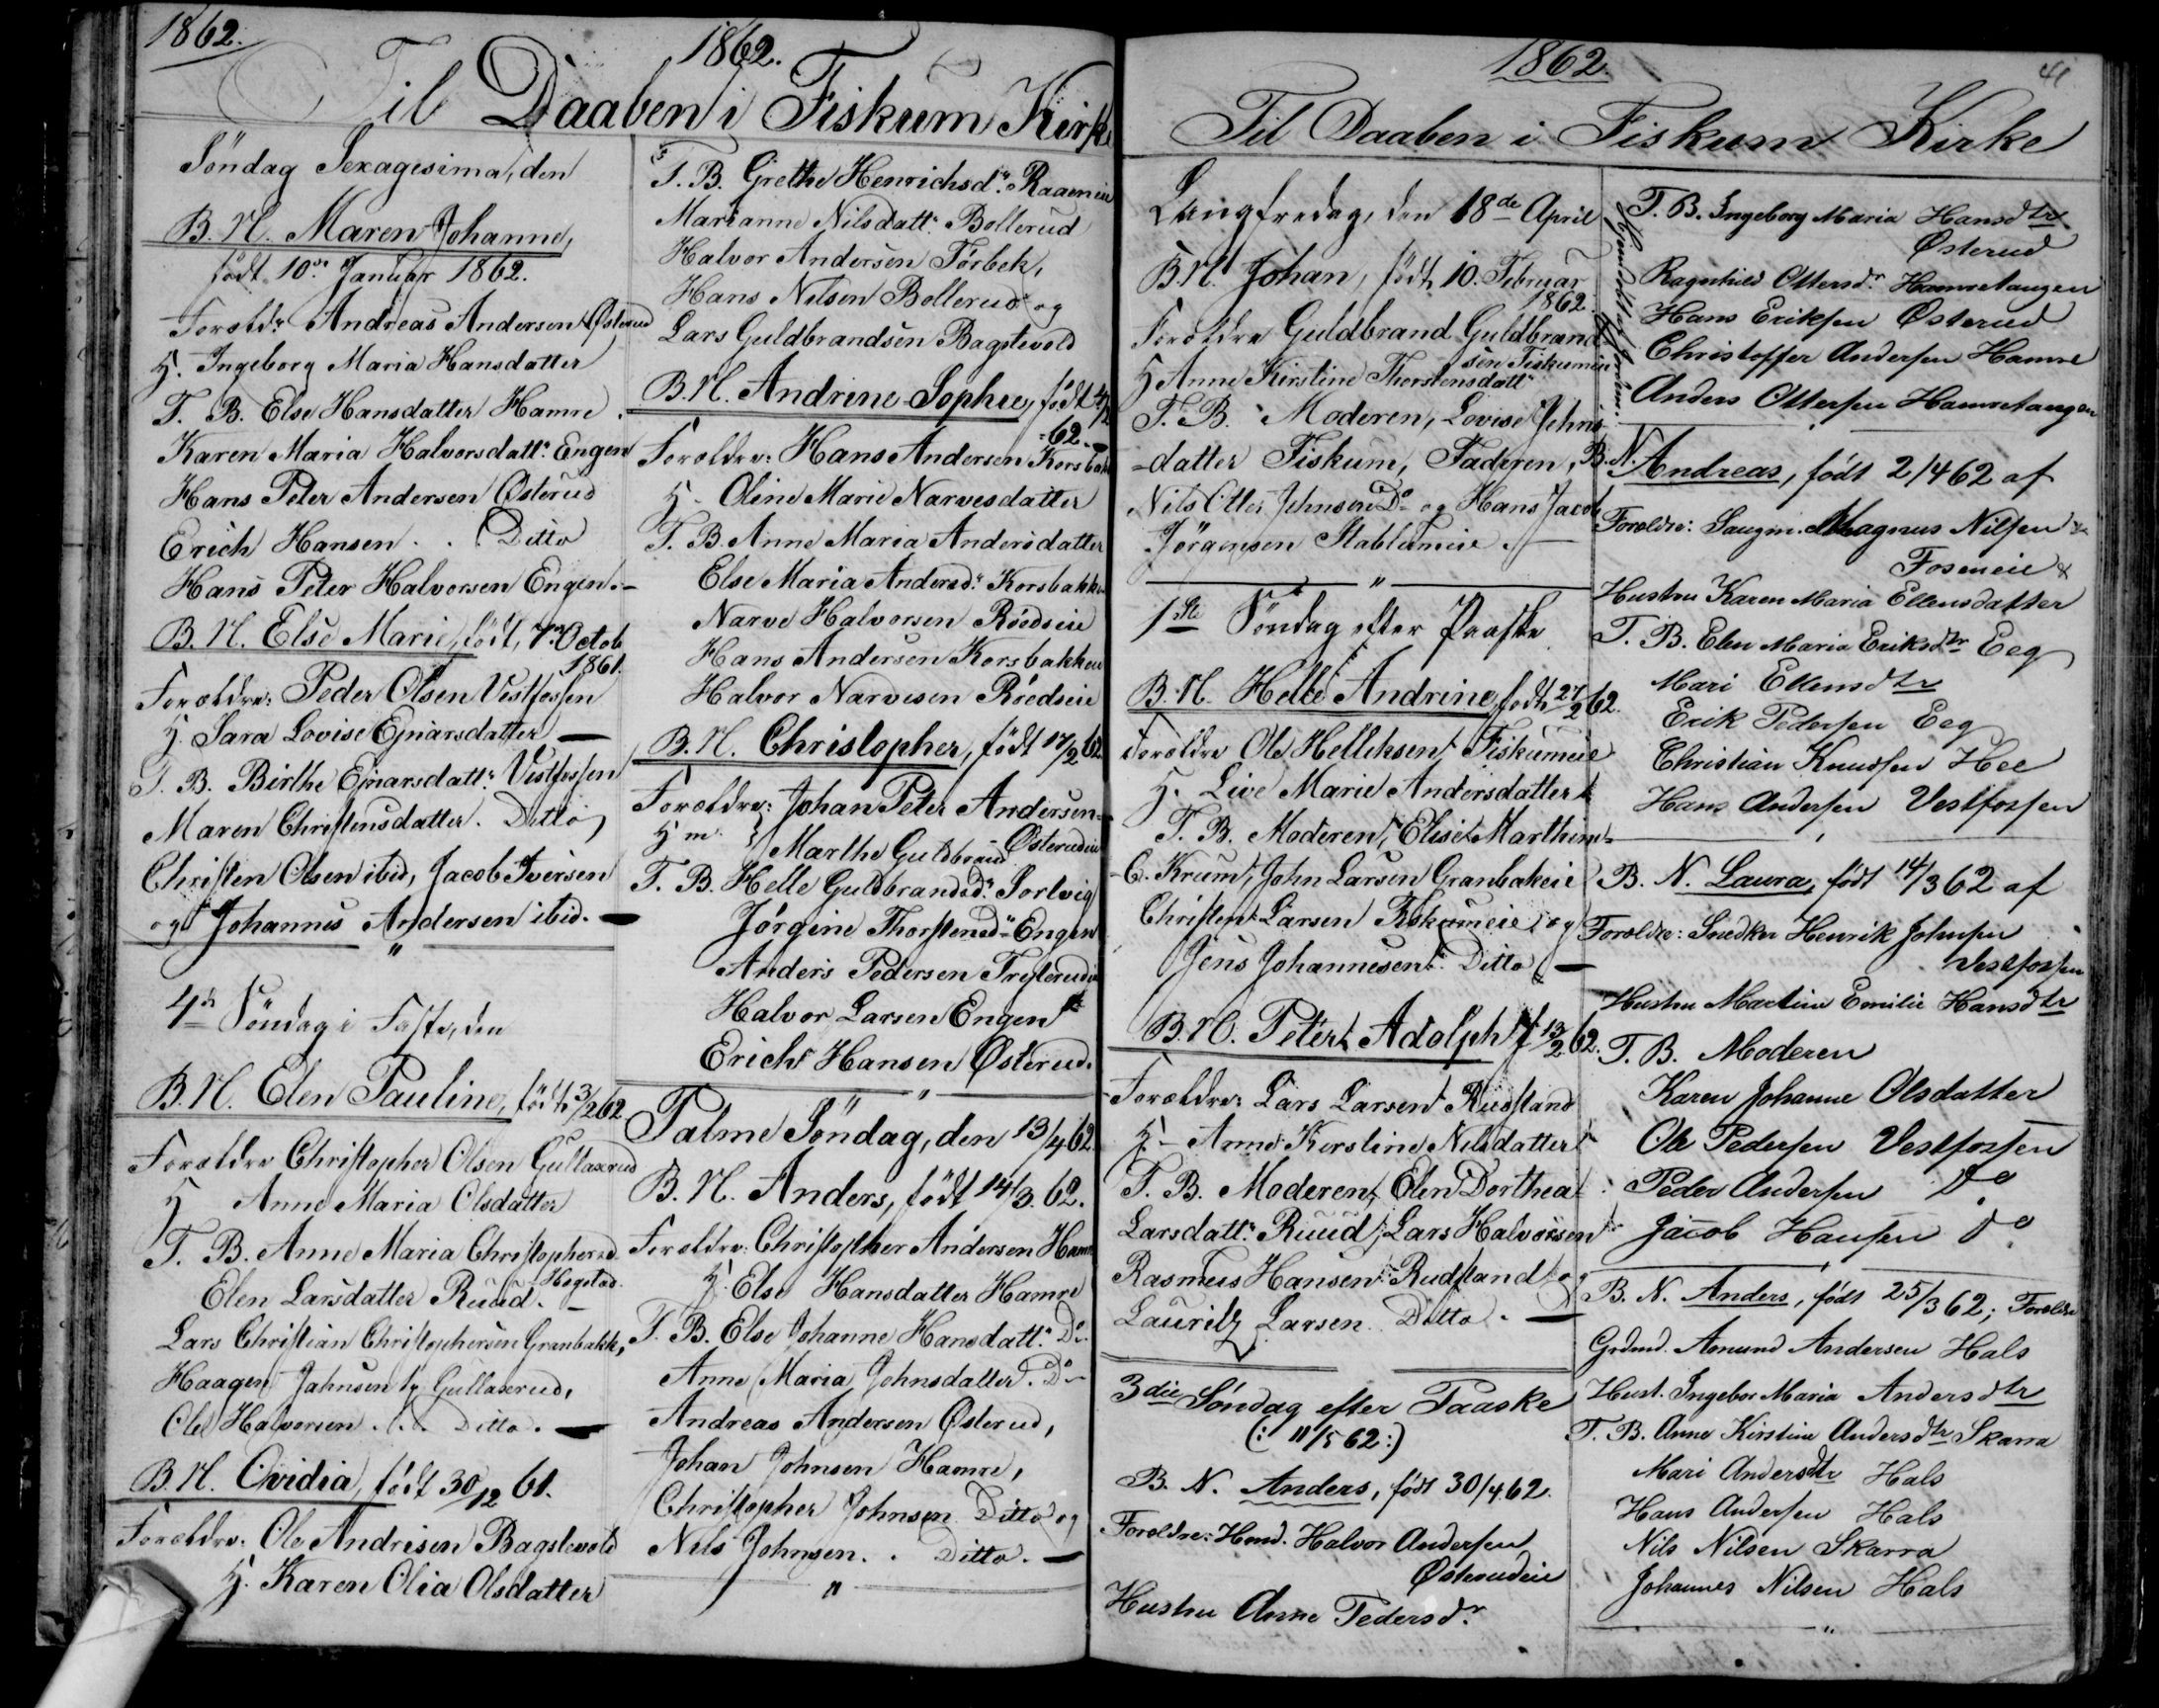 1862.
1862.
Til Daaben i Fiskum Kirke
Söndag Sexagesima, den
B. N. Maren Johanne,
födt 10de Januar 1862.
Foræld: Andreas Andersen Østerud
H. Ingeborg Maria Hansdatter
T. B. Else Hansdatter Hamre
Karen Maria Halvorsdatt: Engen
Hans Peter Andersen Østerud
Erich Hansen . . Ditto
Hans Peter Halvorsen Engen.-
B. N. Else Marie, födt, 7de Octob
1861.
Forældre: Peder Olsen Vestfossen
H. Sara Lovise Ejnarsdatter —
T. B. Birthe Ejnarsdatt: Vestfossen
Maren Christensdatter. Ditto,
Christen Olsen ibid, Jacob Iversen
og Johannes Andersen ibid. —
"
4de Söndag i Faste, den
B. N. Elen Pauline, födt 3/2 62
Forældre Christopher Olsen Gullaserud
H Anne Maria Olsdatter
T. B. Anne Maria Christophersd.
Hogstad.
Elen Larsdatter Ruud. —
Lars Christian Christophersen Granbakk,
Haagen Jahnsen Gullaserud,
Ole Halvorsen . . . Ditto. —
B. N. Ovidia, födt 30/12 61.
Forældre: Ole Andresen Bagstevold
H. Karen Olia Olsdatter
T. B. Grethe Henrichsd: Raaeneie
Marianne Nilsdatt: Bollerud
Halvor Andersen Tørbek,
Hans Nilsen Bollerud og
Lars Guldbrandsen Bagstevold
B. N. Andrine Sophie, födt 4/2
62. —
Forældre: Hans Andersen Korsbakk
H - Oline Marie Narvesdatter
T. B. Anne Maria Andersdatter
Else Maria Andersd: Korsbakk
Narve Halvorsen Röedseie
Hans Andersen Korsbakken
Halvor Narvesen Röedseie
B. N. Christopher, födt 17/2 62
Forældre: Johan Peter Andersen
Østerudeie
H m. Marthe Guldbrand
T. B. Helle Guldbrandsd: Sorlvig
Jørgine Thorstensd: Engen
Anders Pedersen Tresterudeie
Halvor Larsen Engen
Erich Hansen Østerud.
"
Palme Söndag, den 13/4 62.
B. N. Anders, födt 14/3. 62.
Forældre: Christopher Andersen Hamre
H. Else Hansdatter Hamre
T. B. Else Johanne Hansdatt: Do
Anne Maria Johnsdatter. Do
Andreas Andersen Østerud,
Johan Johnsen Hamre,
Christopher Johnsen Ditto og
Nils Johnsen. . Ditto. —
"
1862.
41
Til Daaben i Fiskum Kirke
Langfredag, den 18de April
B. N. Johan, födt 10. Februar
1862.
Forældre Guldbrand Guldbrand-
sen Fiskumeie
H Anne Kirstine Thorstensdatt:
T. B. Moderen, Lovise Johns-
-datter Fiskum, Faderen,
Nils Otter Johnsen Do og Hans Jacob
Jörgensen Stablumeie. —
"
1ste Söndag efter Paaske
B. N. Helle Andrine, födt 27/2 62.
Forældre Ole Helliksen Fiskumeie
H. Live Marie Andersdatter
T. B. Moderen, Elise Marthine
C. Krum, John Larsen Granbakeie
Christen Larsen Fiskumeie, og
Jens Johannesen Ditto —
B. N. Peter Adolph f 13/2 62.
Forældre: Lars Larsen Rudstand
H - Anne Kirstine Nilsdatter
T. B. Moderen, Elen Dorthea
Larsdatt: Ruud, Lars Halvorsen
Rasmus Hansen Rudstand og
Lauritz Larsen Ditto. —
3die Søndag efter Paaske
(: 11/5 62 :)
B. N. Anders, født 30/4 62.
Forældre: Hmd. Halvor Andersen
Østerudeie
Hustru Anne Pedersdr.
T. B. Ingeborg Maria Hansdtr
Østerud
Ragnhild Ottersdr. Hamretangen
Hans Eriksen Østerud
Christoffer Andersen Hamre
Anders Ottersen Hamretangen
B. N. Andreas, født 2/4 62 af
Forældre: Saugm. Magnus Nilsen
Foseneie
Hustru Karen Maria Ellensdatter
T. B. Elen Maria Eriksdtr Eeg
Mari Ellensdtr
Erik Pedersen Eeg
Christian Knudsen Hee
Hans Andersen Vestfossen
B. N. Laura, født 14/3 62 af
Forældre: Snedker Henrik Johnsen
Vestfossen
Hustru Martine Emilie Hansdtr
T. B. Moderen
Karen Johanne Olsdatter
Ole Pedersen Vestfossen
Peder Andersen Do
Jacob Hansen Do
B. N. Anders, født 25/3 62; Forældre
Grdmd. Amund Andersen Hals
Hust. Ingebor Maria Andersdtr
T. B. Anne Kirstine Andersdtr Skarra
Mari Andersdtr Hals
Hans Andersen Hals
Nils Nilsen Skarra
Johannes Nilsen Hals
"